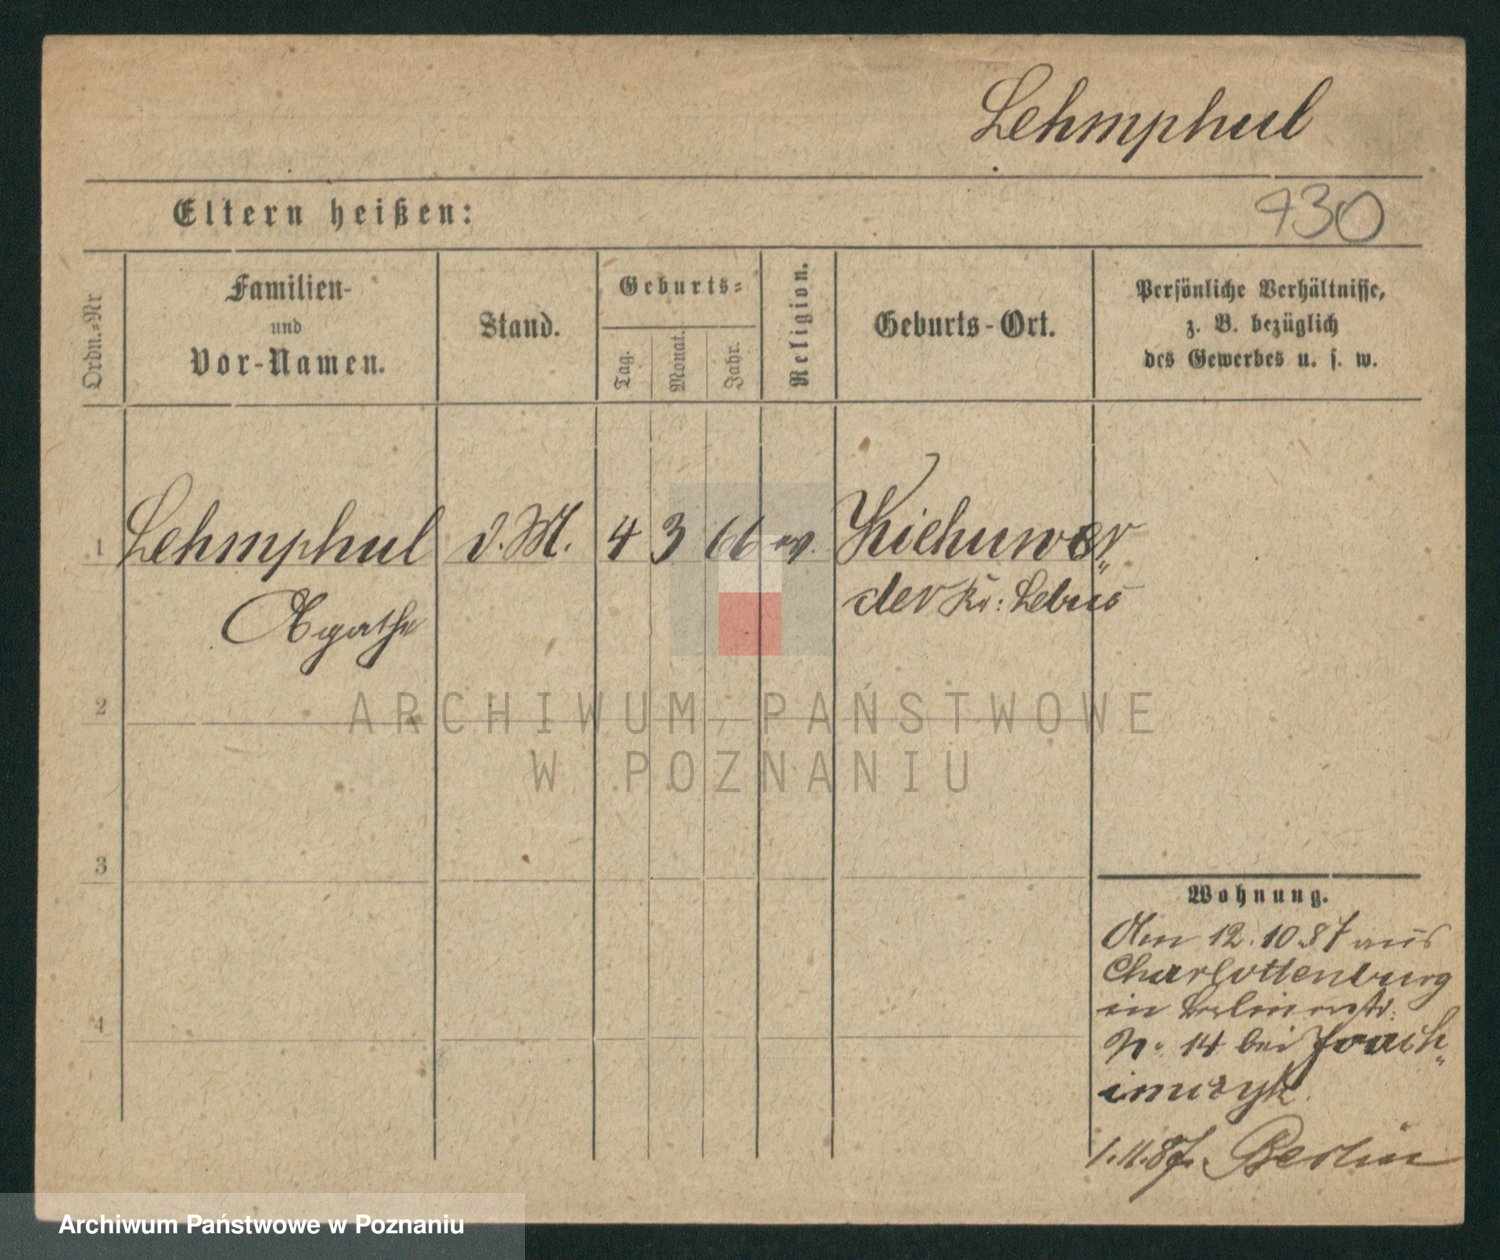 Lehmphul
Eltern heißen:
730
Ordn.=Nr
Familien-
und
Vor-Namen.
Stand.
Geburts=
Tag.
Monat.
Jahr.
Religion.
Geburts-Ort.
Persönliche Verhältnisse,
z. B. bezüglich
des Gewerbes u. s. w.
1
Lehmphul
Agathe
d. M.
4
3
66
ev.
Kiehnwer„
der Kr: Lebus
2
3
4
Wohnung.
Am 12.10.87 aus
Charlottenburg
in
N. 14 bei Joach„
imczyk.
1.11.87. Berlin
ARCHIWUM PAŃSTWOWE
W POZNANIU
Archiwum Państwowe w Poznaniu